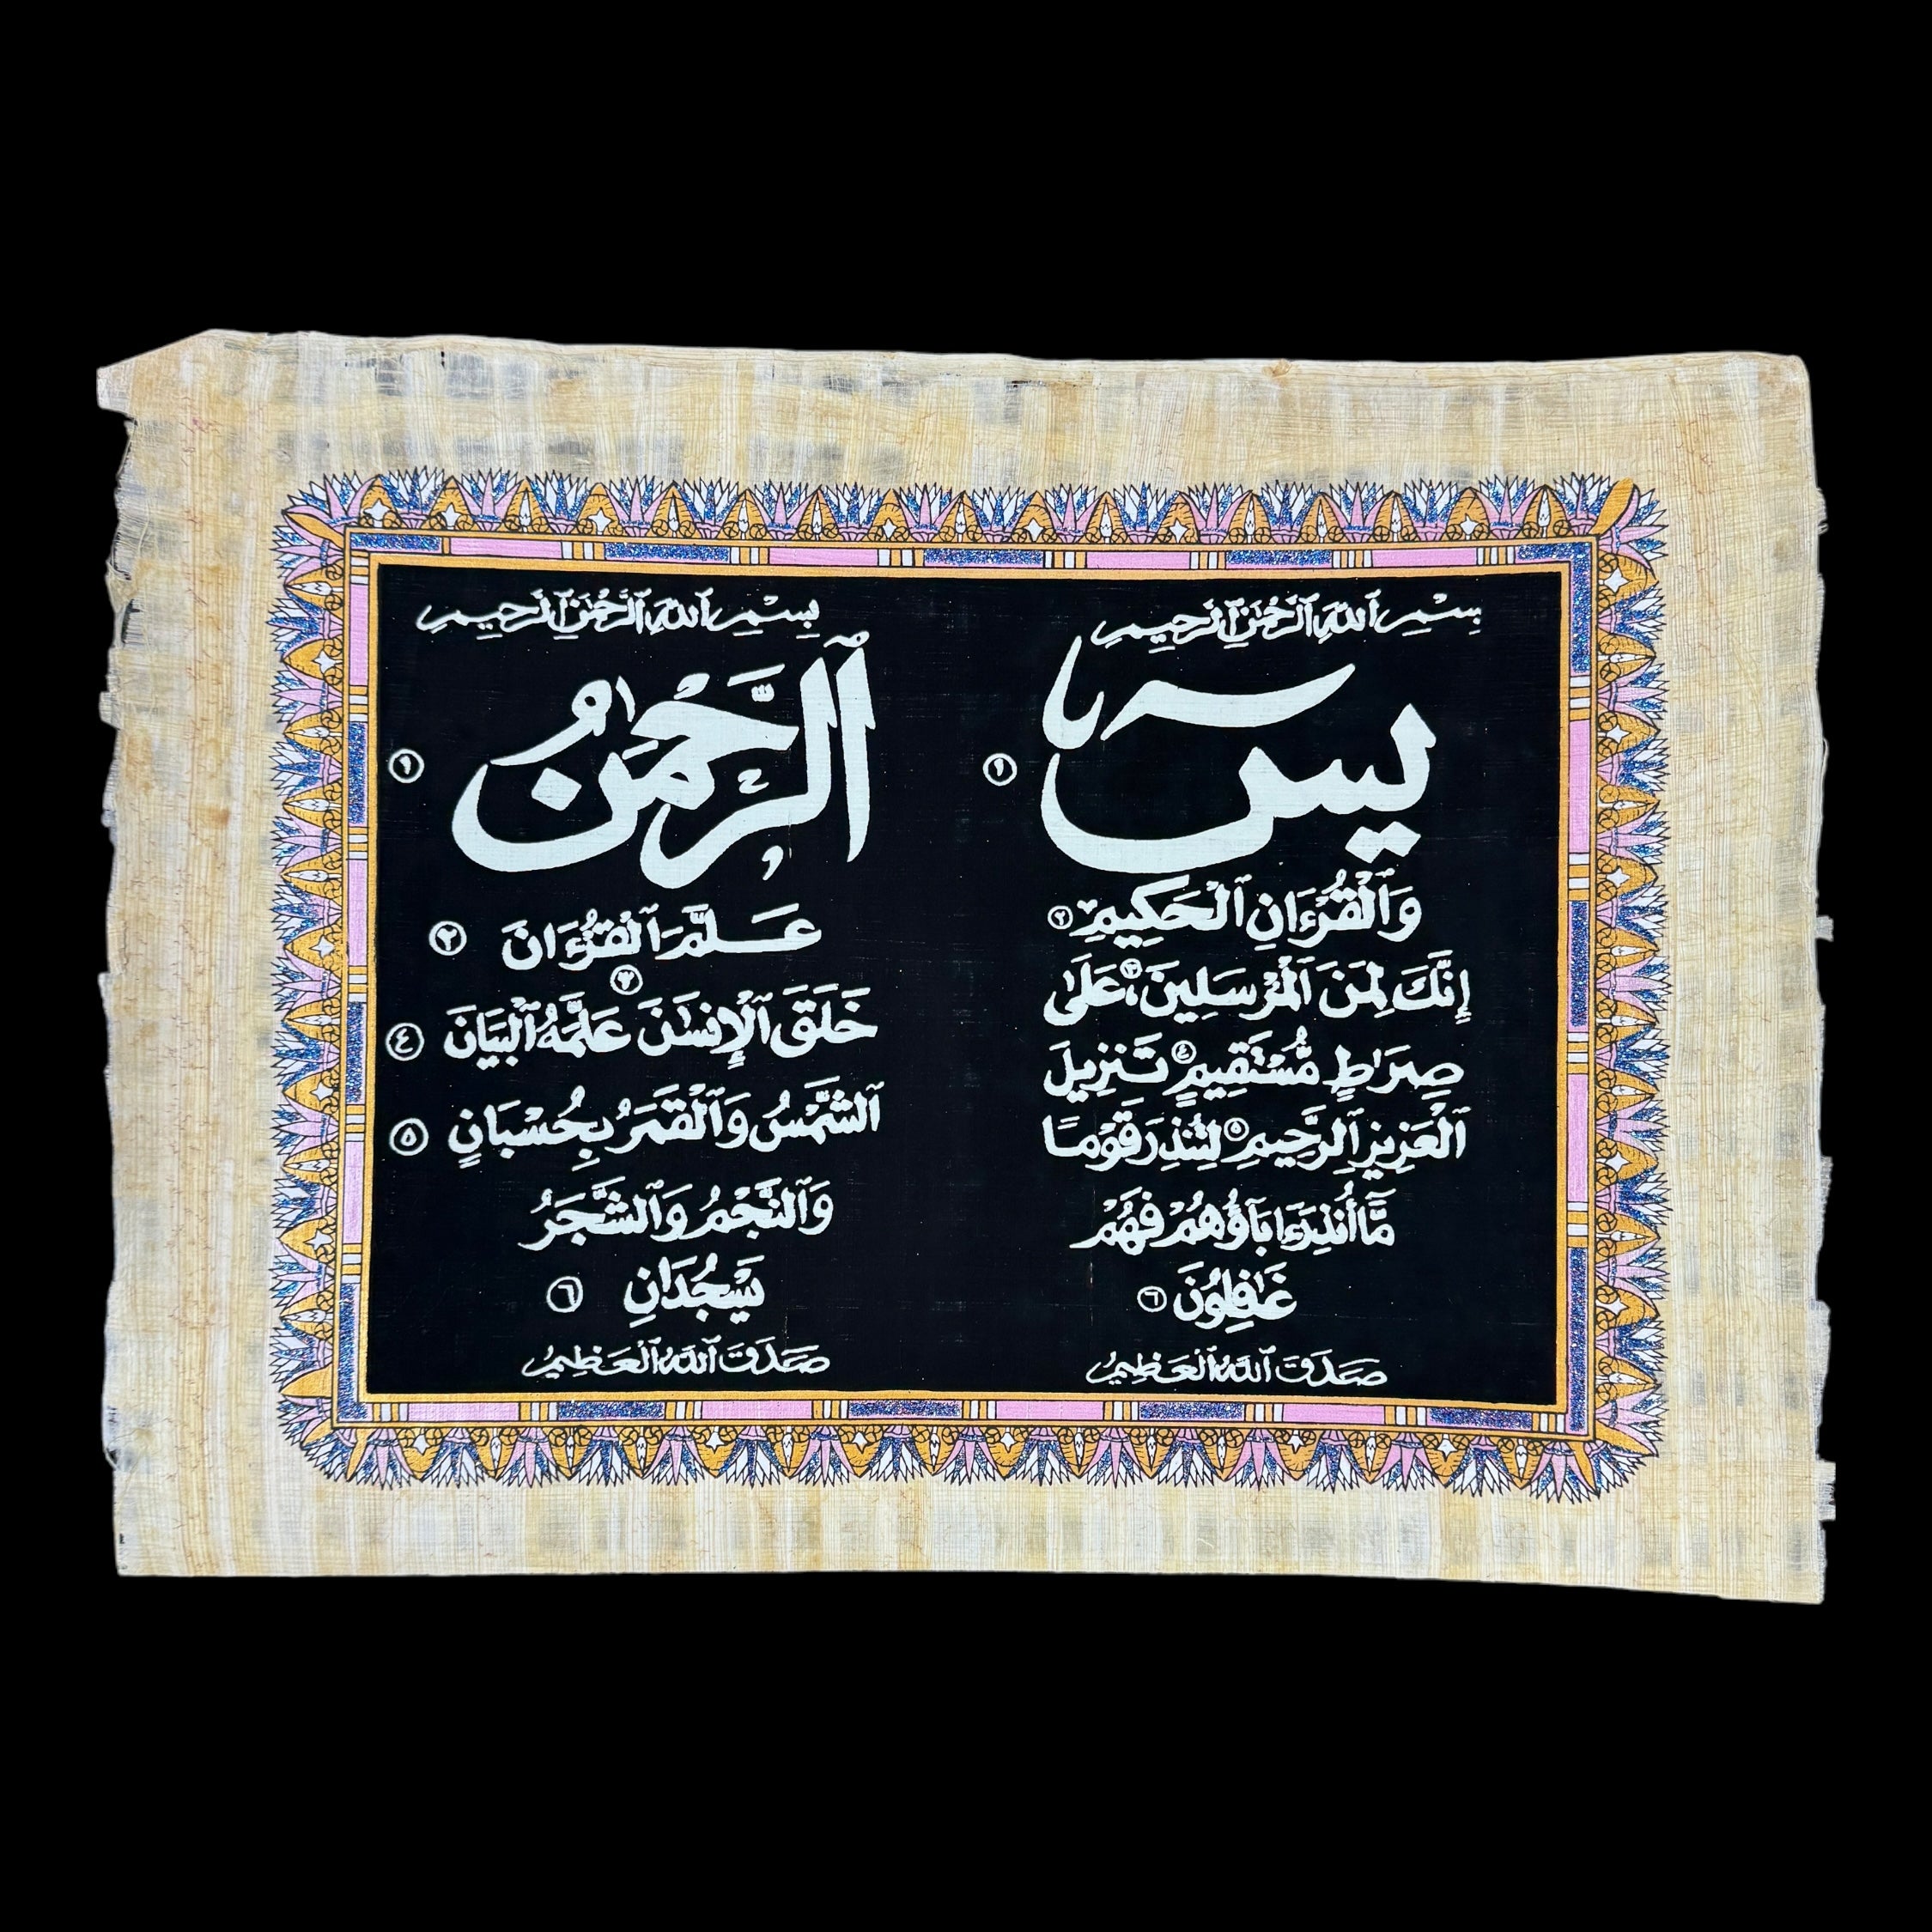 بِسْمِ ٱللَّهِ ٱلرَّحْمَٰنِ ٱلرَّحِيمِ
يسٓ ١
وَٱلْقُرْءَانِ ٱلْحَكِيمِ ٢
إِنَّكَ لَمِنَ ٱلْمُرْسَلِينَ ٣ عَلَىٰ
صِرَٰطٍ مُّسْتَقِيمٍ ٤ تَنزِيلَ
ٱلْعَزِيزِ ٱلرَّحِيمِ ٥ لِتُنذِرَ قَوْمًا
مَّا أُنذِرَ ءَابَآؤُهُمْ فَهُمْ
غَٰفِلُونَ ٦
صَدَقَ ٱللَّهُ ٱلْعَظِيمُ
بِسْمِ ٱللَّهِ ٱلرَّحْمَٰنِ ٱلرَّحِيمِ
ٱلرَّحْمَٰنُ ١
عَلَّمَ ٱلْقُرْءَانَ ٢
خَلَقَ ٱلْإِنسَٰنَ ٣ عَلَّمَهُ ٱلْبَيَانَ ٤
ٱلشَّمْسُ وَٱلْقَمَرُ بِحُسْبَانٍ ٥
وَٱلنَّجْمُ وَٱلشَّجَرُ
يَسْجُدَانِ ٦
صَدَقَ ٱللَّهُ ٱلْعَظِيمُ